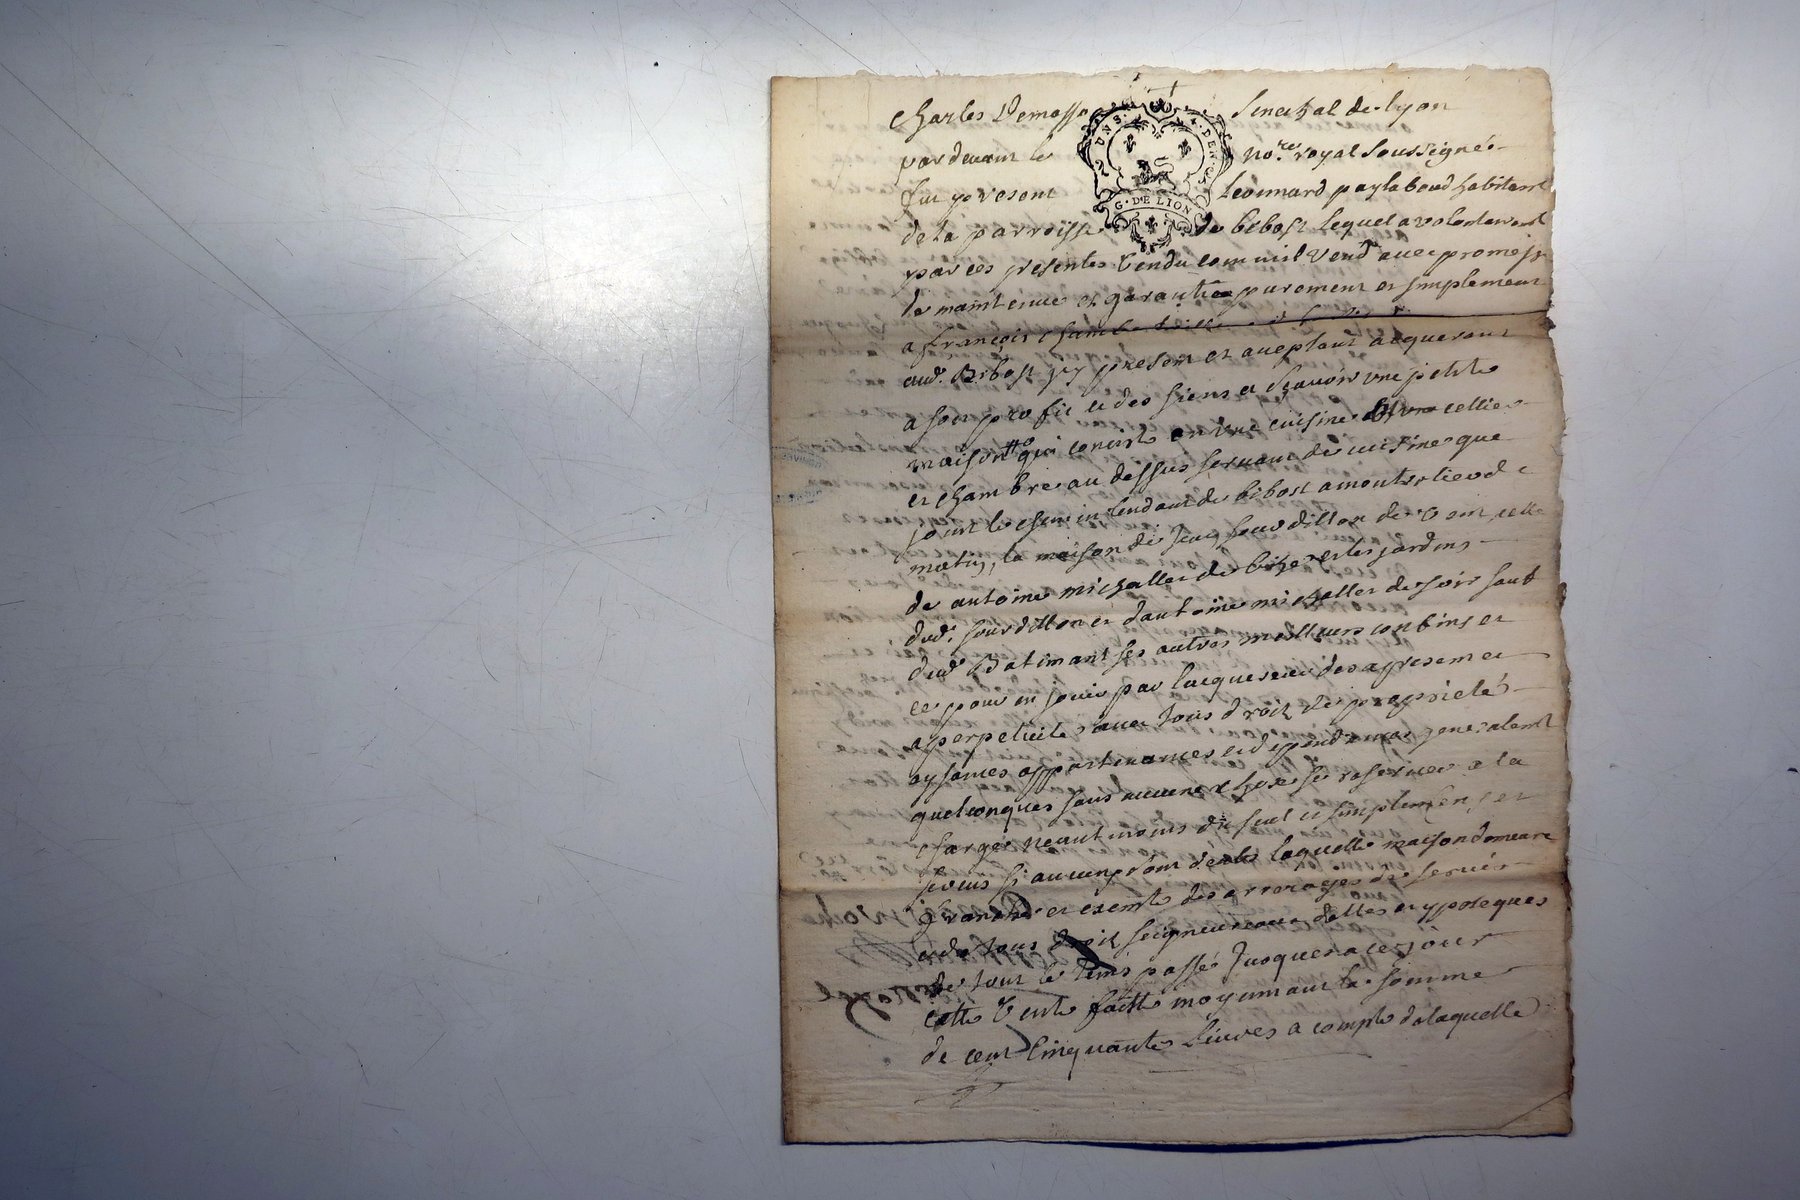 Charles Demasso Senechal de Lyon
UN S. DEN.
G. DE LION
pardevant le no.re royal soussigné
fut present Leonnard paylaboud habitant
de la parroisse de bibost lequel a volontairemt
par ces presentes Vendu comme il Vend avec promesse
de maintenue et garantie purement et simplement
a françois
aud. Bibost icy present et aceptant acquereur
a son profit et des siens a sçavoir une petite
maison qui consiste en une cuisine un cellier
et chambre au dessus servant de cuisine que
joint le chemin tendant de bibost a montrotier de
matin, la maison de Jean sourdillon de Vent, celle
de antoine michallet de bize et les jardins
dud. sourdillon et d'antoine michallet de soir sauf
dud. Batimant ses autres meilleurs confins et
ce pour en jouir par lacquereur des a present et
a perpetuité avec tous droit de proprieté
aysances appartenances et dependances generalemt
quelconques sans aucune chose se reserver a la
charge neantmoins du seul et simple cens et
servis si aucun sont deubs laquelle maison demeure
franche et exempte des arrerages de servis
et de tous droit seigneureaux dettes et ypoteques
de tout le tems passé Jusques a ce jour
cette Vente faitte moyennant la somme
de cent Cinquante Livres a compte de laquelle